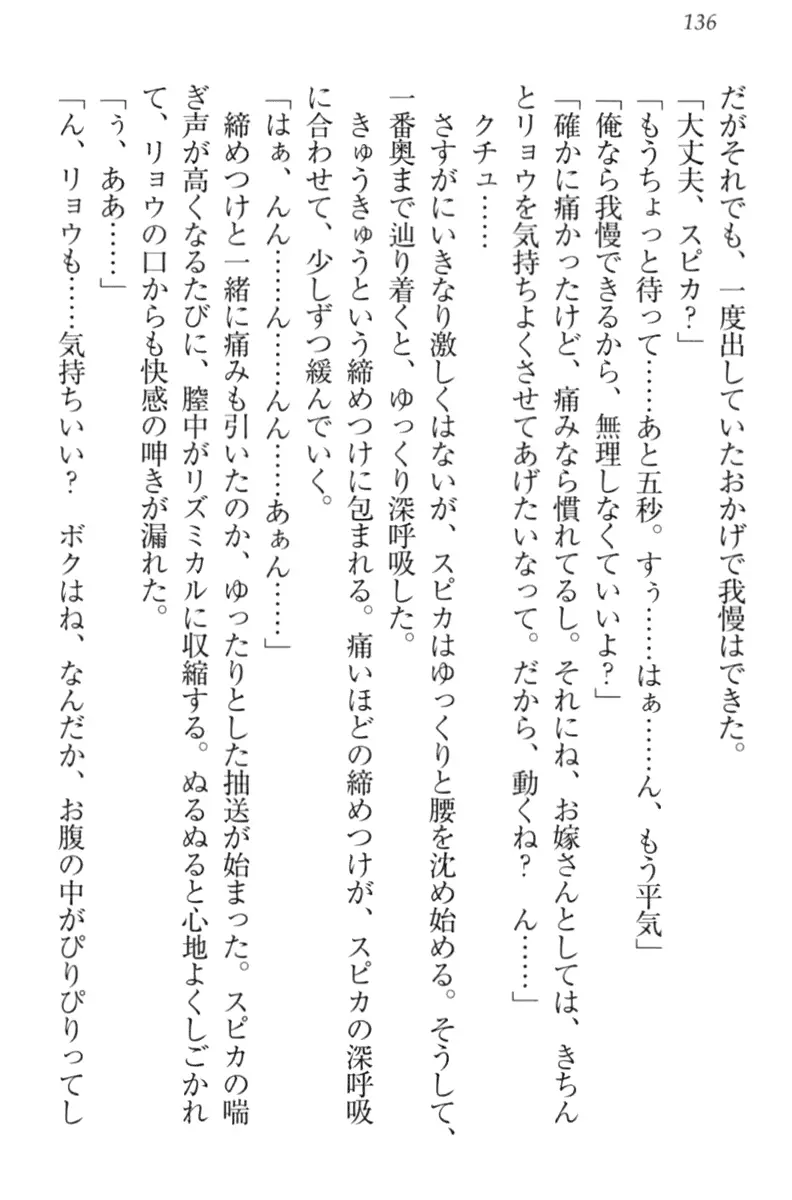 136
だがそれでも、一度出していたおかげで我慢はできた。
「大丈夫、スピカ?」
「もうちょっと待って……あと五秒。すぅ……はぁ……ん、もう平気」
「俺なら我慢できるから、無理しなくていいよ?」
「確かに痛かったけど、痛みなら慣れてるし。それにね、お嫁さんとしては、きちん
とリョウを気持ちよくさせてあげたいなって。だから、動くね? ん……」
クチュ……
さすがにいきなり激しくはないが、スピカはゆっくりと腰を沈め始める。そうして、
一番奥まで辿り着くと、ゆっくり深呼吸した。
きゅうきゅうという締めつけに包まれる。痛いほどの締めつけが、スピカの深呼吸
に合わせて、少しずつ緩んでいく。
「はぁ、んん……ん……んん……あぁん……」
締めつけと一緒に痛みも引いたのか、ゆったりとした抽送が始まった。スピカの喘
ぎ声が高くなるたびに、膣中がリズミカルに収縮する。ぬるぬると心地よくしごかれ
て、リョウの口からも快感の呻きが漏れた。
「ぅ、ああ……」
「ん、リョウも……気持ちいい? ボクはね、なんだか、お腹の中がぴりぴりってし